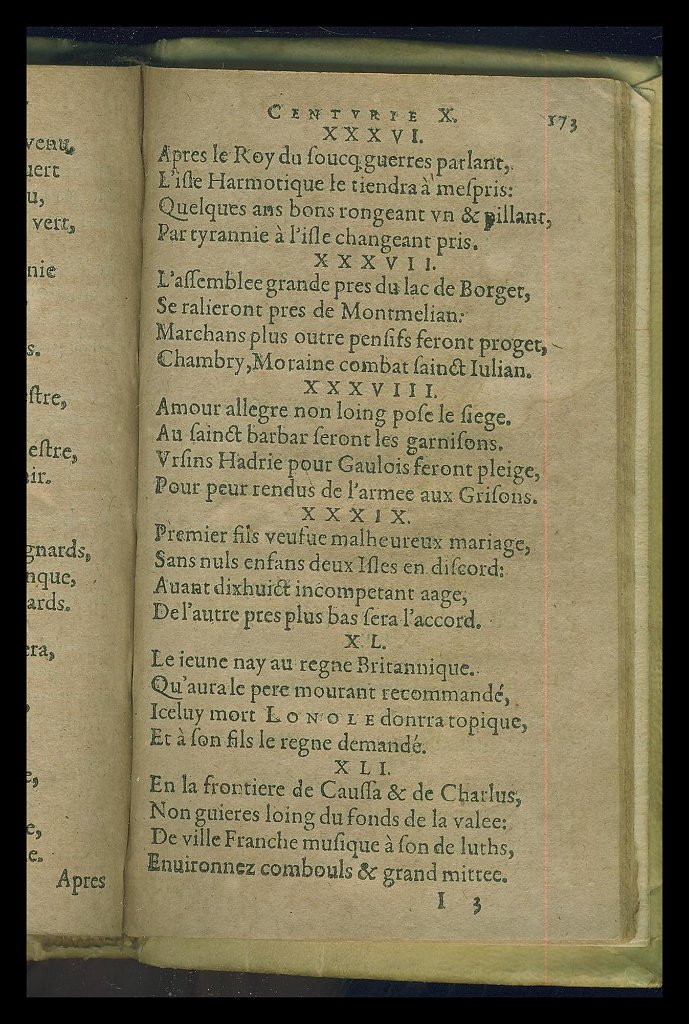 venu,
uert
u,
vert,
nie
s.
ſtre,
eſtre,
ir.
gnards,
nque,
ards.
era,
e,
e,
e.
Apres
CENTVRIE X. 173
XXXVI.
Apres le Roy du ſoucq guerres parlant,
L'iſle Harmotique le tiendra à meſpris:
Quelques ans bons rongeant vn & pillant,
Par tyrannie à l'iſle changeant pris.
XXXVII.
L'aſſemblee grande pres du lac de Borget,
Se ralieront pres de Montmelian:
Marchans plus outre penſifs feront proget,
Chambry, Moraine combat ſainct Iulian.
XXXVIII.
Amour allegre non loing poſe le ſiege.
Au ſainct barbar ſeront les garniſons.
Vrſins Hadrie pour Gaulois feront pleige,
Pour peur rendus de l'armee aux Griſons.
XXXIX.
Premier fils veufue malheureux mariage,
Sans nuls enfans deux Iſles en diſcord:
Auant dixhuict incompetant aage,
De l'autre pres plus bas ſera l'accord.
XL.
Le ieune nay au regne Britannique.
Qu'aura le pere mourant recommandé,
Iceluy mort LONOLE donrra topique,
Et à ſon fils le regne demandé.
XLI.
En la frontiere de Cauſſa & de Charlus,
Non guieres loing du fonds de la valee:
De ville Franche muſique à ſon de luths,
Enuironnez combouls & grand mittee.
I 3